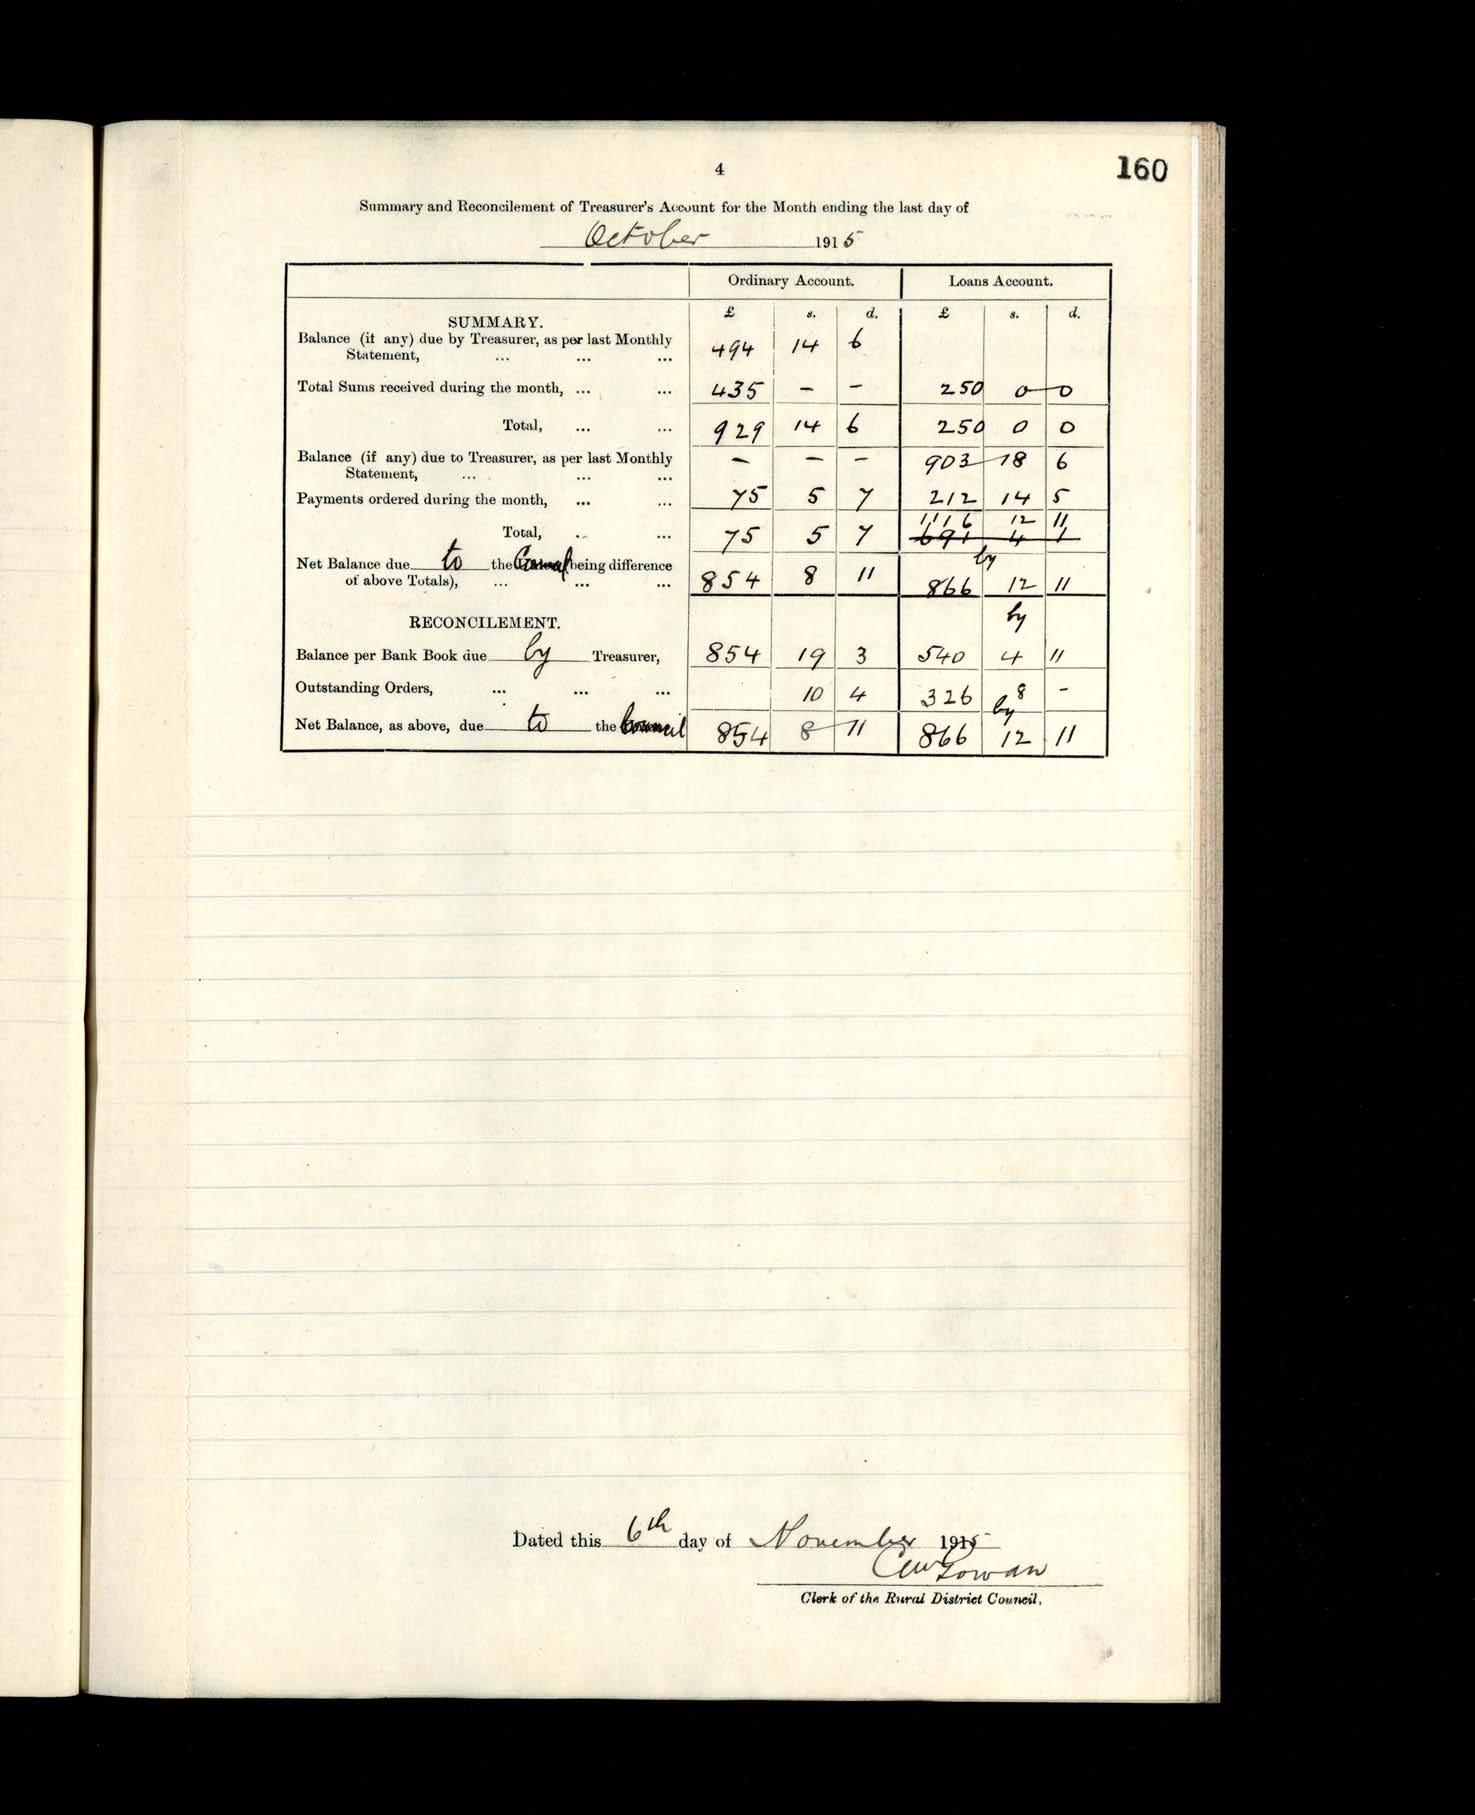 4
160
Summary and Reconcilement of Treasurer's Account for the Month ending the last day of
October 1915
Ordinary Account. Loans Account.
£ s. d. £ s. d.
SUMMARY.
Balance (if any) due by Treasurer, as per last Monthly
Statement, ... ... ... 494 14 6
Total Sums received during the month, ... ... 435 – – 250 0 0
Total, ... ... 929 14 6 250 0 0
Balance (if any) due to Treasurer, as per last Monthly – – – 903 18 6
Statement, ... ... ...
Payments ordered during the month, ... ... 75 5 7 212 14 5
1116 12 11
Total, .. ... 75 5 7 691 4 1
by
Net Balance due to the Council being difference
of above Totals), ... ... ... 854 8 11 866 12 11
RECONCILEMENT. by
Balance per Bank Book due by Treasurer, 854 19 3 540 4 11
Outstanding Orders, ... ... ... 10 4 326 8 –
by
Net Balance, as above, due to the Council 854 8 11 866 12 11
Dated this 6th day of November 1915
Gowan
Clerk of the Rural District Council.